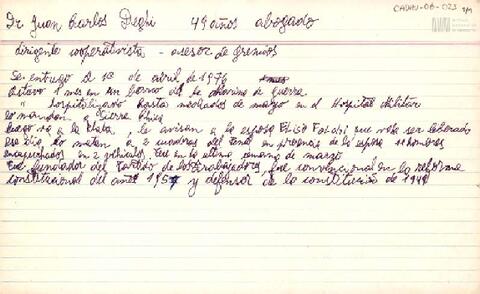 Dr Juan Carlos Deghi 49 años abogado
CADHU-06-023
dirigente cooperativista - asesor de gremios
Se entregó el 1º de abril de 1976
Estuvo 1 mes en un barco de la marina de guerra
" hospitalizado hasta mediados de marzo en el Hospital Militar
lo mandan a Sierra Chica
luego va a La Plata, le avisan a la esposa que va a ser liberado
ese día lo matan a 2 cuadras del penal en presencia de la esposa 11 hombres
encapuchados en 2 vehículos, fue en la última semana de marzo
Fue fundador del Partido de los trabajadores, fue convencional en la reforma
constitucional del año 1957 y defensor de la constitución de 1949